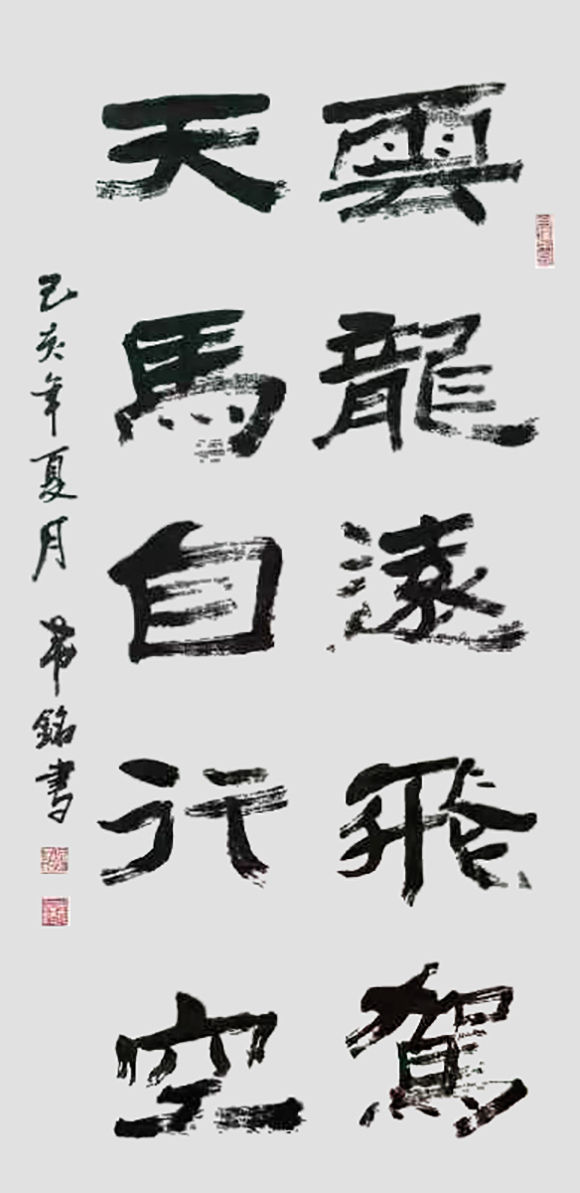 雲龍遠飛駕
天馬自行空
己亥年夏月 希銘書